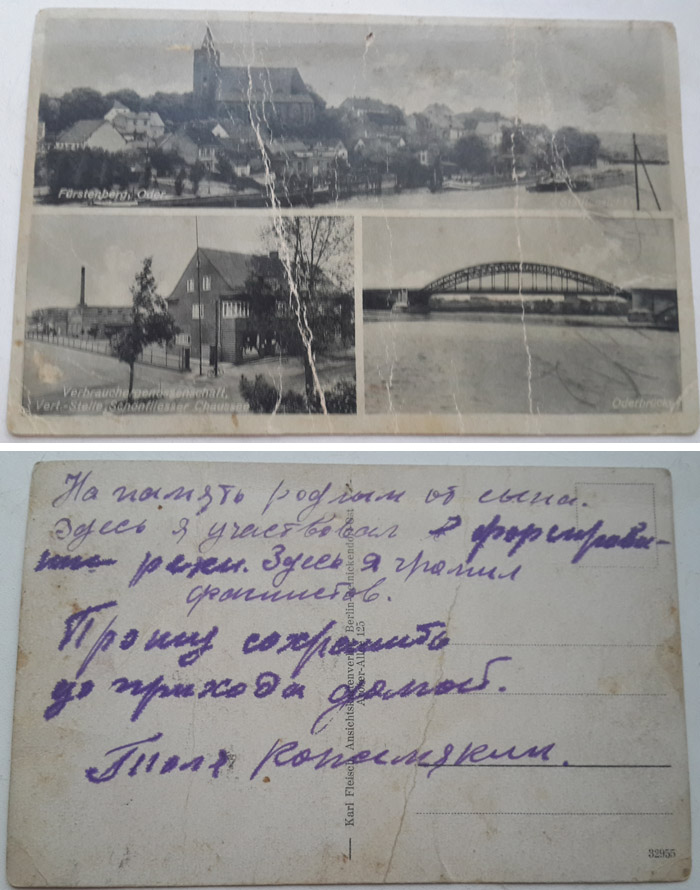 Fürstenberg, Oder
Verbrauchergenossenschaft,
Vert.-Stelle, Schönfliesser Chaussee
Oderbrücke
На память родным от сына.
Здесь я участвовал в форсирова-
нии реки. Здесь я громил
фашистов.
Прошу сохранить
до прихода домой.
Толя
Karl Ansichtskartenverlag Berlin-Reinickendorf Ost
125
32955